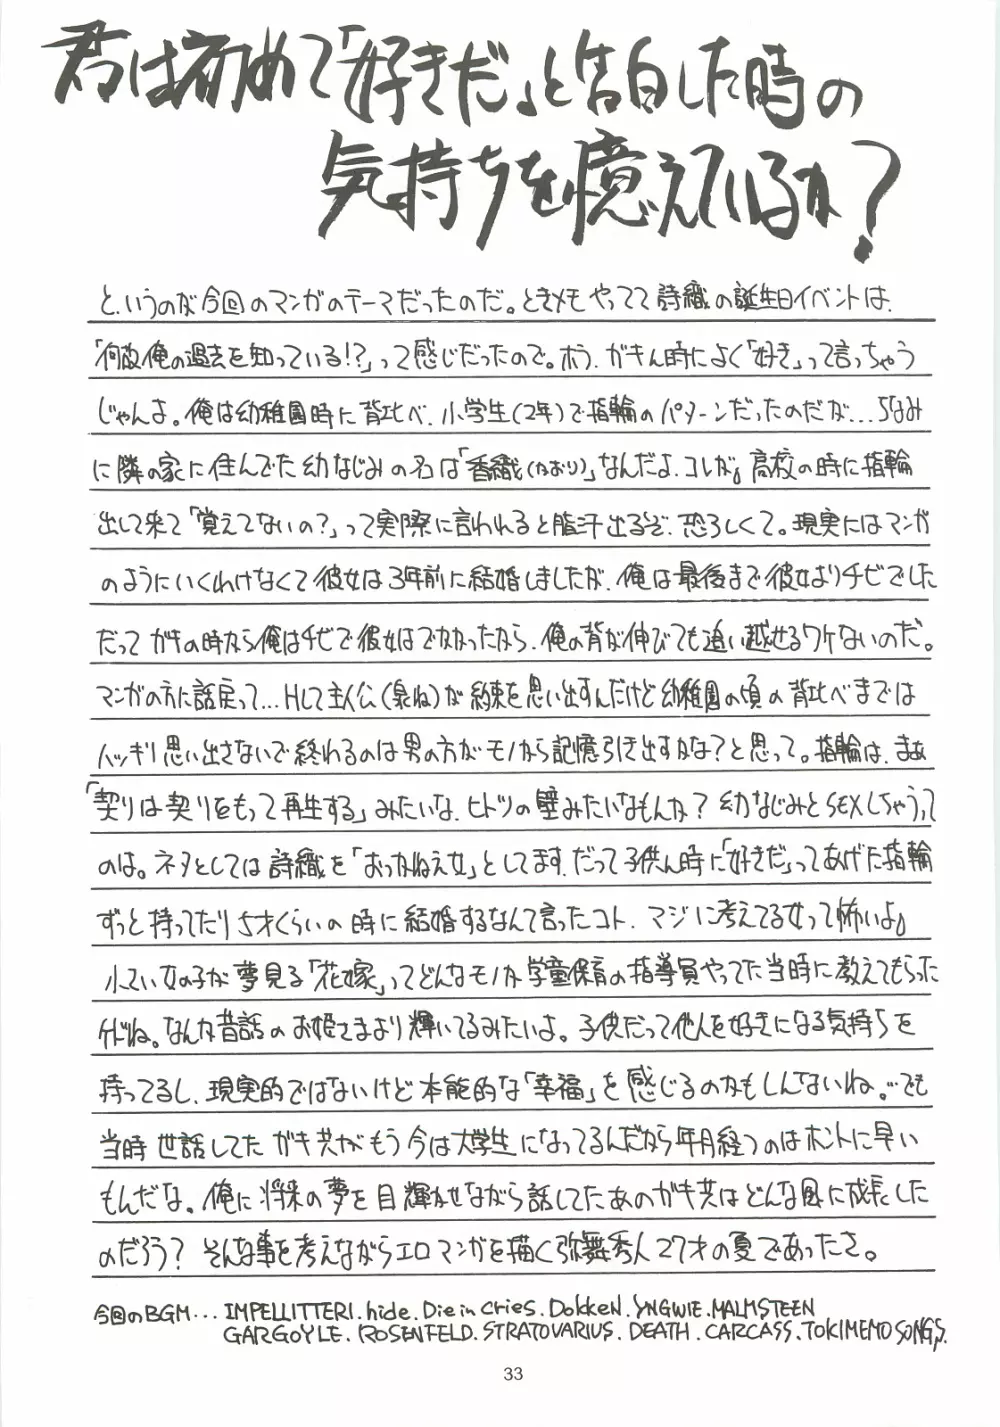 君は初めて「好きだ」と告白した時の
気持ちを憶えているか?
と、いうのが今回のマンガのテーマだったのだ。ときメモやってて詩織の誕生日イベントは、
「何故俺の過去を知っている!?」って感じだったので。ホラ、ガキん時によく「好き」って言っちゃう
じゃんよ。俺は幼稚園時に背比べ、小学生(2年)で指輪のパターンだったのだが...ちなみ
に隣の家に住んでた幼なじみの名は「香織(かおり)」なんだよ、コレが。高校の時に指輪
出して来て「覚えてないの?」って実際に言われると脂汗出るぞ、恐ろしくて。現実にはマンガ
のようにいくわけなくて彼女は3年前に結婚しましたが、俺は最後まで彼女よりチビでした
だってガキの時から俺はチビで彼女はでかかったから、俺の背が伸びても追い越せるワケないのだ。
マンガの方に話戻って...Hして主人公(泉ね)が約束を思い出すんだけど幼稚園の頃の背比べまでは
ハッキリ思い出さないで終わるのは男の方がモノから記憶引き出すかな?と思って。指輪は、まぁ
「契りは契りをもって再生する」みたいな、ヒトツの壁みたいなもんか?幼なじみとSEXしちゃうって
のは。ネタとしては詩織を「おっかねえ女」としてます、だって子供ん時に「好きだ」ってあげた指輪
ずっと持ってたり5才くらいの時に結婚するなんて言ったコト、マジに考えてる女って怖いよ。
小さい女の子が夢見る「花嫁」ってどんなモノか学童保育の指導員やってた当時に教えてもらった
けどね。なんか昔話のお姫さまより輝いてるみたいよ。子供だって他人を好きになる気持ちを
持ってるし、現実的ではないけど本能的な「幸福」を感じるのかもしんないね。...でも
当時世話してたガキ共がもう今は大学生になってるんだから年月経つのはホントに早い
もんだな。俺に将来の夢を目輝かせながら話してたあのガキ共はどんな風に成長した
のだろう?そんな事を考えながらエロマンガを描く弥舞秀人27才の夏であったさ。
今回のBGM...IMPELLITTERI.hide.Die in Cries.Dokken.YNGWIE.MALMSTEEN
GARGOYLE.ROSENFELD.STRATOVARIUS.DEATH.CARCASS.TOKIMEMO SONGS.
33